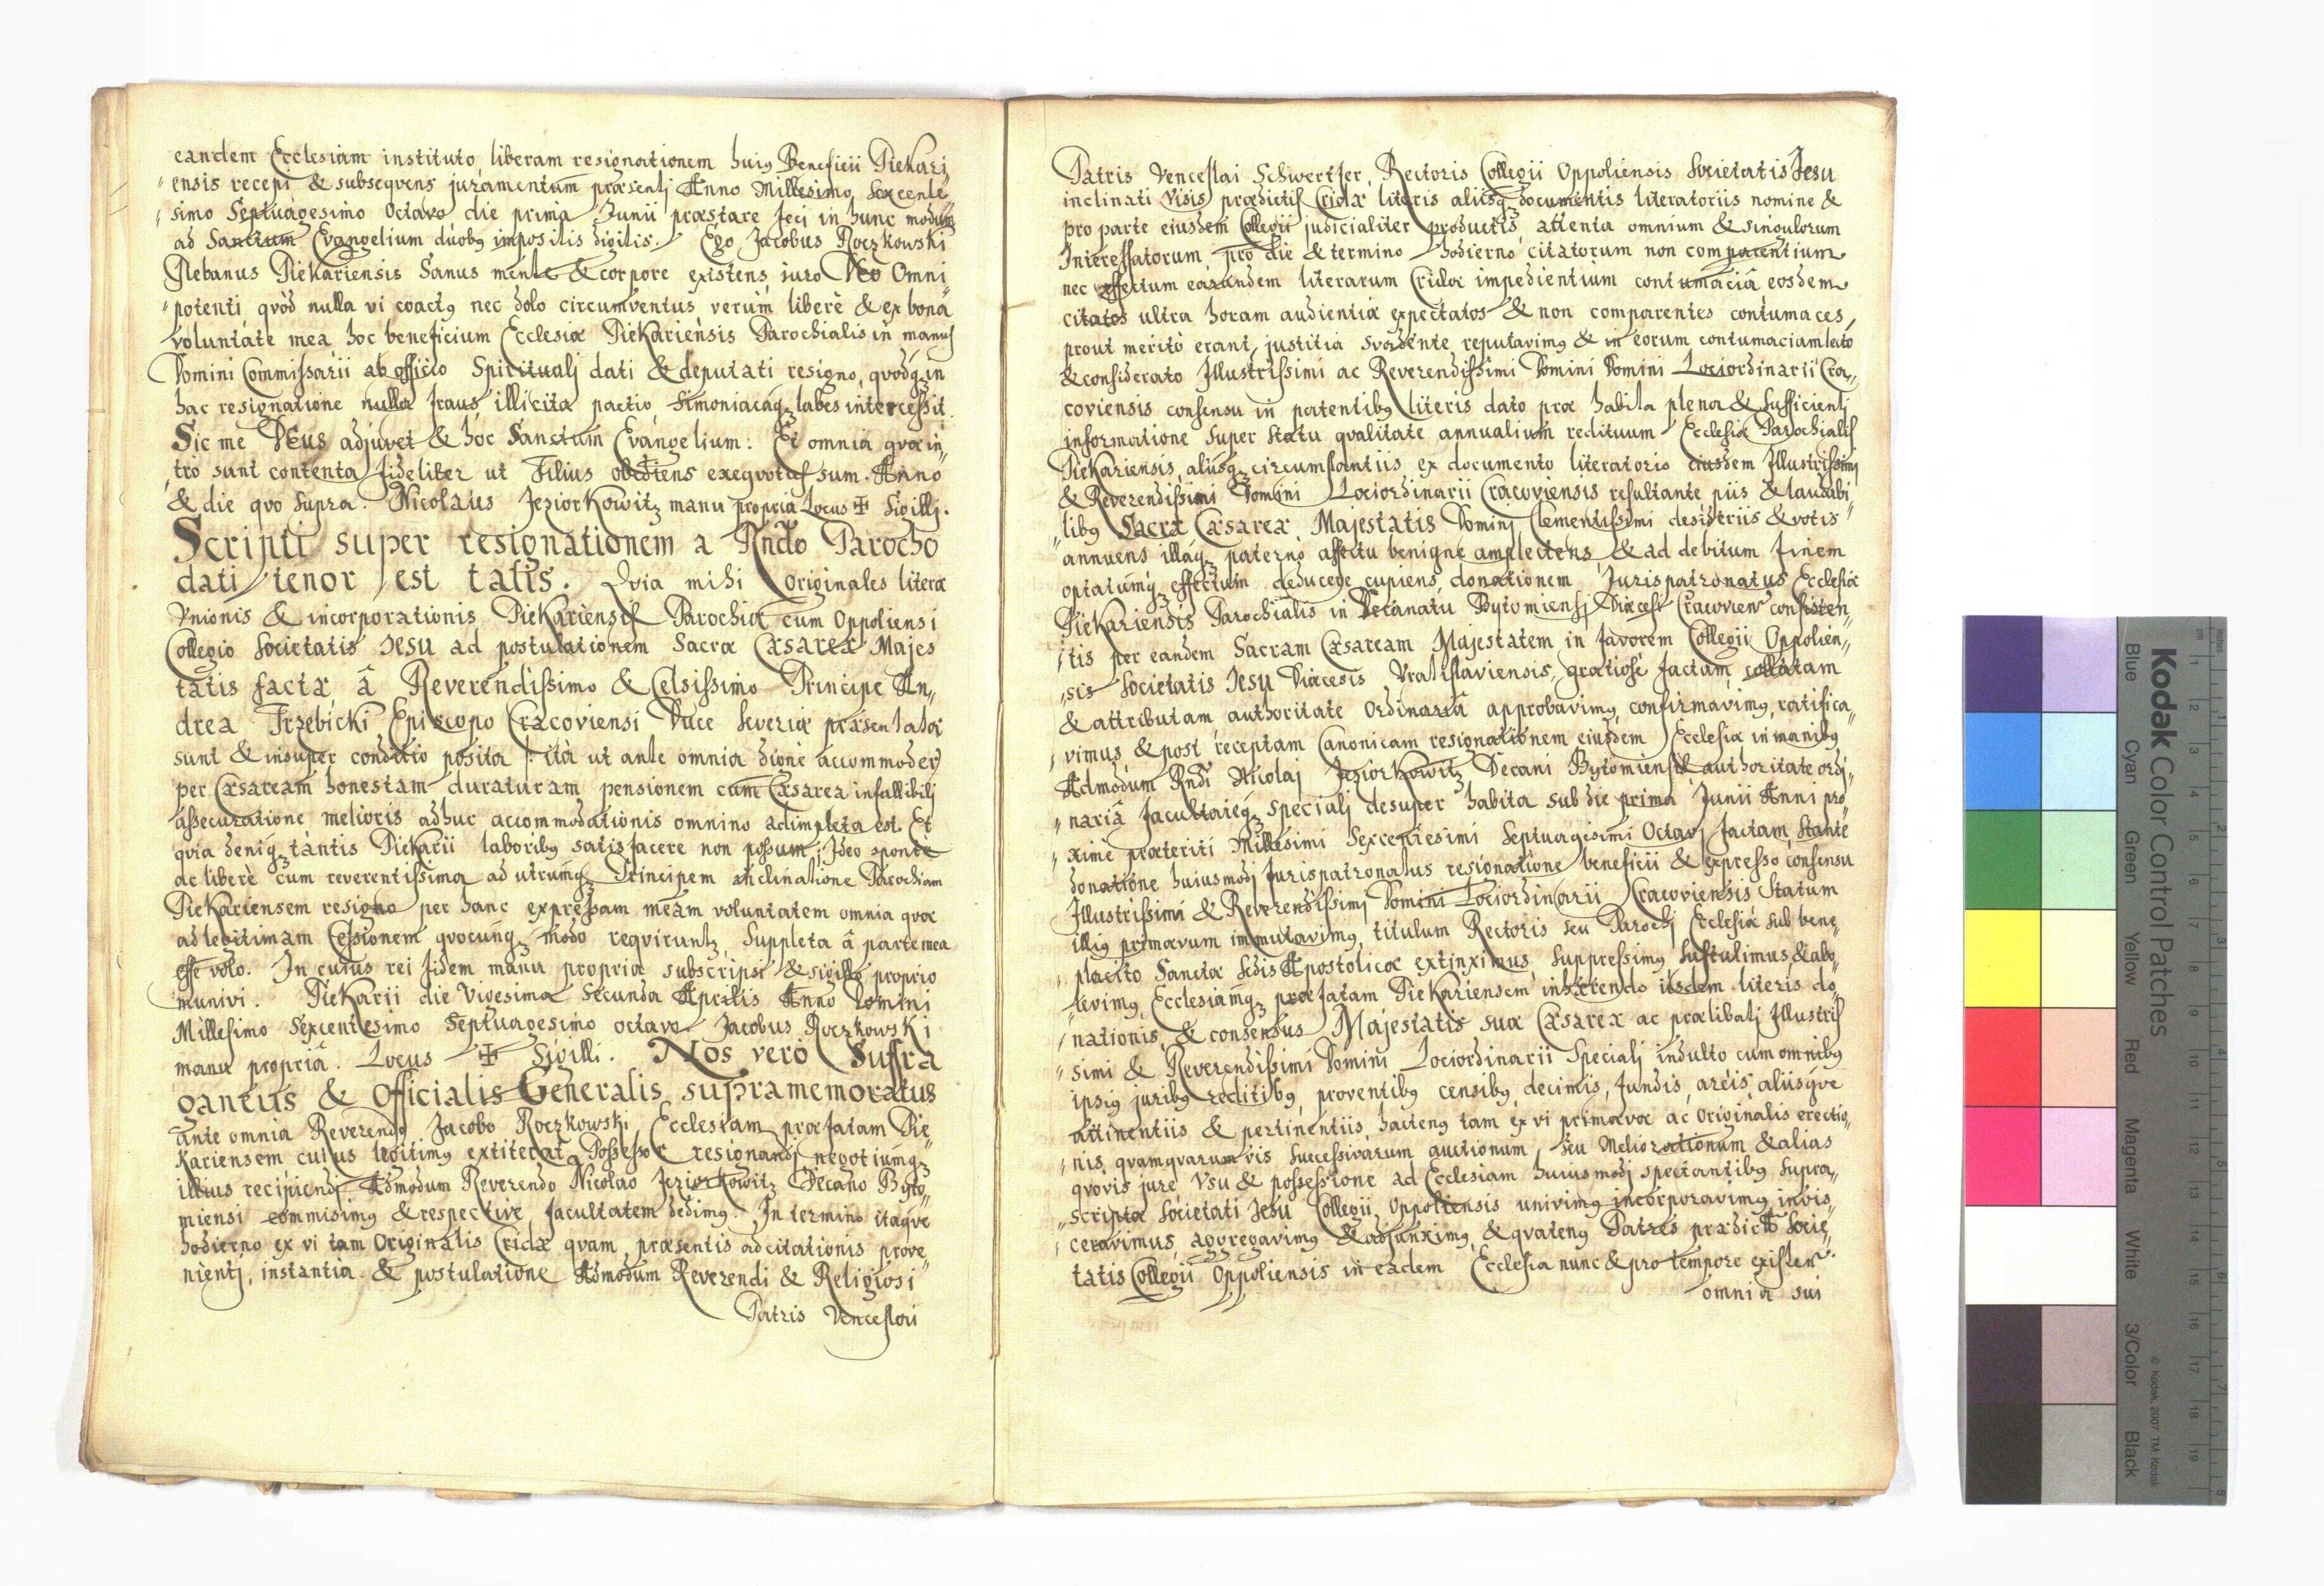 eandem Ecclesiam instituto liberam resignationem huiꝰ Beneficii Piekari
ensis recepi & subseqvens juramentum præsentj Anno Millesimo Sexcente
simo Septuagesimo Octavo die prima Junii præstare feci in hunc modum
ad Sanctum Evangelium duobꝰ impositis digitis. Ego Jacobus Roczkowski
Plebanus Piekariensis Sanus mente & corpore existens, iuro DEo Omni
potenti qvòd nulla vi coactꝰ nec dolo circumventus verùm liberè & ex bona
voluntate mea hoc beneficium Ecclesiæ Piekariensis Parochialis in manus
Domini Commissarii ab officio Spiritualj dati & deputati resigno, qvodqꝫ in
hac resignatione nulla fraus, illicita pactio Simoniacaqꝫ labes intercessit.
Sic me DEus adjuvet & hoc Sanctum Evangelium. Et omnia qvæ in
tro sunt contenta fideliter ut Filius obediens exeqvotus sum. Anno
& die qvo supra. Nicolaus Jeziorkowitz manu propria Locus ✠ Sigillj.
Scripti super resignationem a Rndo Parocho
dati tenor est talis. Qvia mihi Originales literæ
Vnionis & incorporationis Piekariensis Parochiæ cum Oppoliensi
Collegio Societatis JESU ad postulationem Sacræ Cæsareæ Majes
tatis factæ â Reverendissimo & Celsissimo Principe An
drea Trzebicki Episcopo Cracoviensi Duce Severiæ præsentatæ
sunt & insuper conditio posita : ità ut ante omnia
per Cæsaream honestam duraturam pensionem cum Cæsarea infallibilj
assecuratione melioris adhuc accommodationis omnino adimpleta est. Et
qvia deniqꝫ tantis Piekarii laboribꝰ satisfacere non possum; Ideo sponte
ac liberè cum reverentissima ad utrumqꝫ Principem inclinatione Parochiam
Piekariensem resigno per hanc expressam meam voluntatem omnia qvæ
ad legitimam Cessionem qvocunqꝫ modo reqviruntꝫ Suppleta â parte mea
esse volo. In cuius rei fidem manu propria subscripsi & sigillo proprio
munivi. Piekarii die Vigesima Secunda Aprilis Anno Domini
Millesimo Sexcentesimo Septuagesimo octavo Jacobus Roczkowski
manu propriâ. Locus ✠ Sigilli. Nos verò Suffra
ganeus & Officialis Generalis supramemoratus
ante omnia Reverendo Jacobo Roczkowski, Ecclesiam præfatam Pie
kariensem cuius legitimꝰ extiterat Possessor resignandj negotiumqꝫ
illius recipiendj Admodum Reverendo Nicolao Jeziorkowitz Decano Byto
miensi commisimꝰ & respective facultatem dedimꝰ. In termino itaqve
hodierno ex vi tam Originalis Cridæ qvam præsentis adcitationis prove
nientj, instantia & postulatione Admodum Reverendi & Religiosi
Patris Venceslai
Patris Venceslai Schwertfer, Rectoris Collegii Oppoliensis Societatis Jesu
inclinati Visis prædictis Cridæ literis aliisqꝫ documentis literatoriis nomine &
pro parte eiusdem Collegii judicialiter productis, attenta omnium & singulorum
Interessatorum pro die & termino hodierno citatorum non comparentium
nec effectum earundem literarum Cridæ impedientium contumaciâ eosdem
citatos ultra horam audientiæ expectatos & non comparentes contumaces,
prout meritò erant, justitia svadente reputavimꝰ & in eorum contumaciam lecto
& considerato Illustrissimi ac Reverendissimi Domini Domini Lociordinarii Cra
coviensis consensu in patentibꝰ literis dato præ habita plena & Sufficientj
informatione super statu qvalitate annualium redituum Ecclesiæ Parochialis
Piekariensis aliisqꝫ circumstantiis ex documento literatorio eiusdem Illustrissimj
& Reverendissimi Domini Lociordinarii Cracoviensis resultante piis & laudabi
libꝰ Sacræ Cæsareæ Majestatis Dominj Clementissimi desideriis & votis
annuens illaqꝫ paterno affectu benigne amplectens, & ad debitum finem
optatumqꝫ effectum deducere cupiens, donationem Jurispatronatus Ecclesiæ
Piekariensis Parochialis in Decanatu Bytomiensj Diæcesis Cracovien consisten
tis per eandem Sacram Cæsaream Majestatem in favorem Collegii Oppolien
sis Societatis Jesu Diæcesis Vratislaviensis, gratiosè factam, collatam
& attributam authoritate Ordinariâ approbavimꝰ, confirmavimꝰ, ratifica
vimus, & post receptam Canonicam resignationem eiusdem Ecclesiæ in manibꝰ
Admodum Rndi Nicolaj Jeziorkowitz Decani Bytomiensis authoritate ordi
nariâ facultateqꝫ specialj desuper habita sub die prima Junii Anni pro
ximè præteriti Millesimi Sexcentesimi Septuagesimi Octavj factam Stante
donatione huiusmodj Jurispatronatus resignatione beneficii & expresso consensu
Illustrissimi & Reverendissimj Domini Lociordinarii Cracoviensis Statum
illiꝰ primævum immutavimꝰ, titulum Rectoris seu Parochj Ecclesiæ sub bene
placito Sanctæ Sedis Apostolicæ extinximus, suppressimꝰ Sustulimus & abo
levimꝰ, Ecclesiamqꝫ præfatam Piekariensem inhærendo iisdem literis do
nationis, & consensus Majestatis suæ Cæsareæ ac prælibatj Illustris
simi & Reverendissimi Domini Lociordinarii Specialj indulto cum omnibꝰ
ipsiꝰ juribꝰ reditibꝰ, proventibꝰ censibꝰ, decimis, fundis, areis, aliisqve
attinentiis & pertinentiis, hactenꝰ tam ex vi primævæ ac Originalis erectio
nis, qvamqvarumvis Successivarum auctionum, seu Meliorationum & alias
qvovis jure Vsu & possessione ad Ecclesiam huiusmodj spectantibꝰ supra
scriptæ Societati Jesu Collegii Oppoliensis univimꝰ incorporavimꝰ invis
ceravimus, aggregavimꝰ & adjunximꝰ, & qvatenꝰ Patres prædictæ Socie
tatis Collegii Oppoliensis in eadem Ecclesia nunc & pro tempore existen
omnia sui
Kodak Color Control Patches
Blue Cyan Green Yellow Red Magenta White 3/Color Black
© Kodak, 2007 TM: Kodak